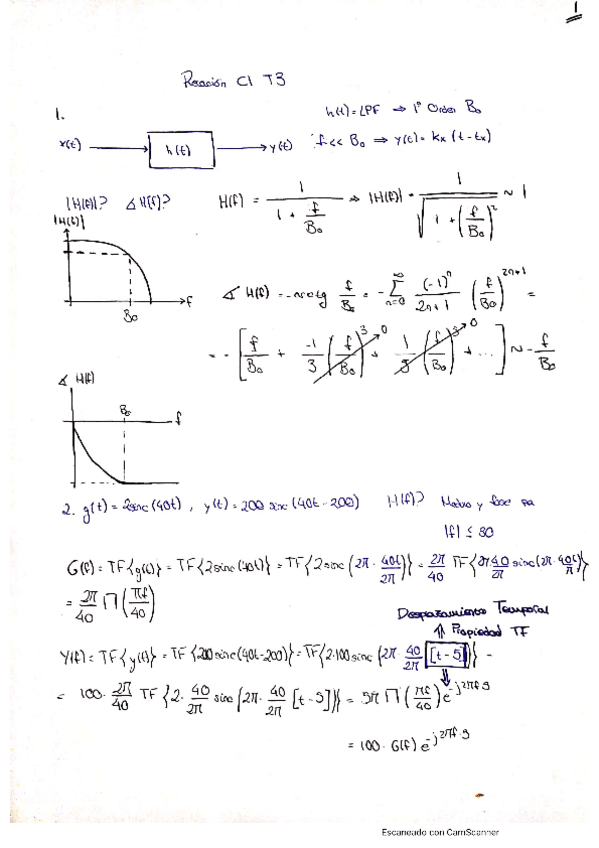 1
Relación C1 T3
1.
h(t) = LPF ⇒ 1º Orden B₀
x(t) → h(t) → y(t)
f << B₀ ⇒ y(t) = Kx (t - tx)
|H(f)|? ∡ H(f)?
H(f) = 1 / (1 + f/B₀) ⇒ |H(f)| = 1 / √(1 + (f/B₀)²) ~ 1
|H(f)|
f
B₀
∡ H(f) = -arctg f/B₀ = - ∑_{n=0}^{∞} (-1)ⁿ / (2n+1) (f/B₀)^{2n+1} =
= - [ f/B₀ + -1/3 (f/B₀)³ → 0 + 1/5 (f/B₀) → 0 + ... ] ~ - f/B₀
∡ H(f)
B₀
f
2. g(t) = 2sinc (40t) , y(t) = 200 sinc (40t - 200) H(f)? Modulo y fase pa
|f| ≤
G(f) = TF{g(t)} = TF{2 sinc(40t)} = TF{2 sinc (2π · 40t/2π)} = 2π/40 TF{2 40/2π sinc(2π · 40t/
= 2π/40 Π (πf/40)
Desplazamiento Temporal
⇑ Propiedad TF
Y(f) = TF{y(t)} = TF{200 sinc(40t-200)} = TF{2·100 sinc (2π · 40/2π [t - 5])} =
= 100 · 2π/40 TF {2 · 40/2π sinc (2π · 40/2π [t - 5])} = 5π Π (πf/40) e^{-j2πf·5}
= 100 · G(f) e^{-j2πf·5}
Escaneado con CamScanner